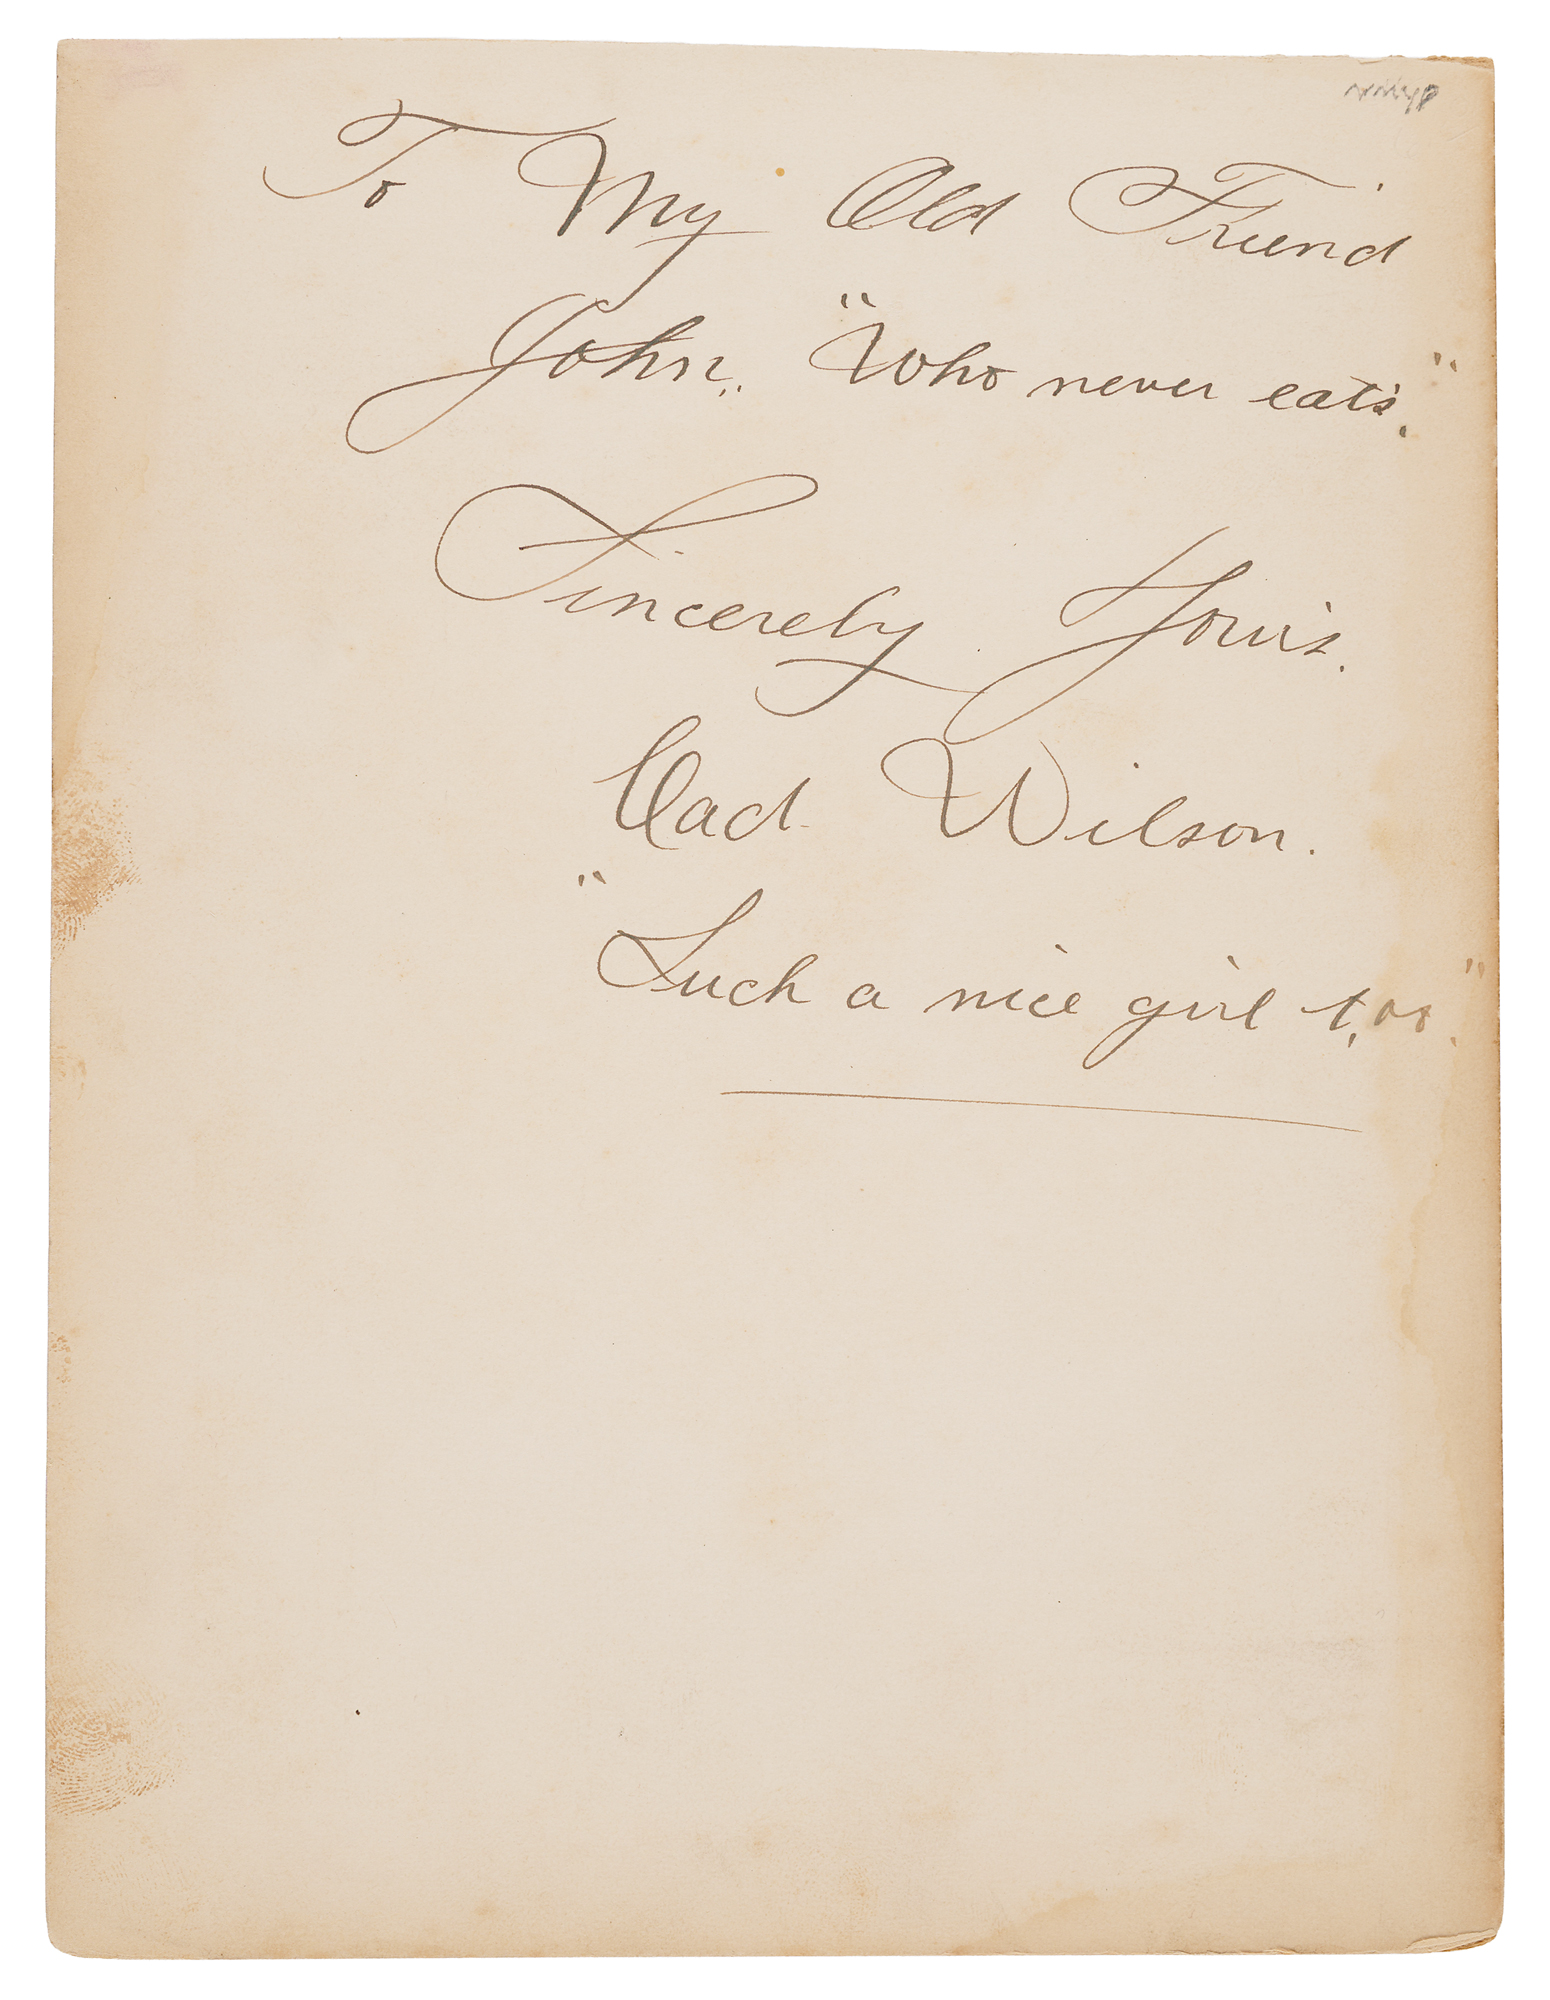 To My Old Friend
John. "Who never eats."
Sincerely Yours.
Cad Wilson.
"Such a nice girl, too."